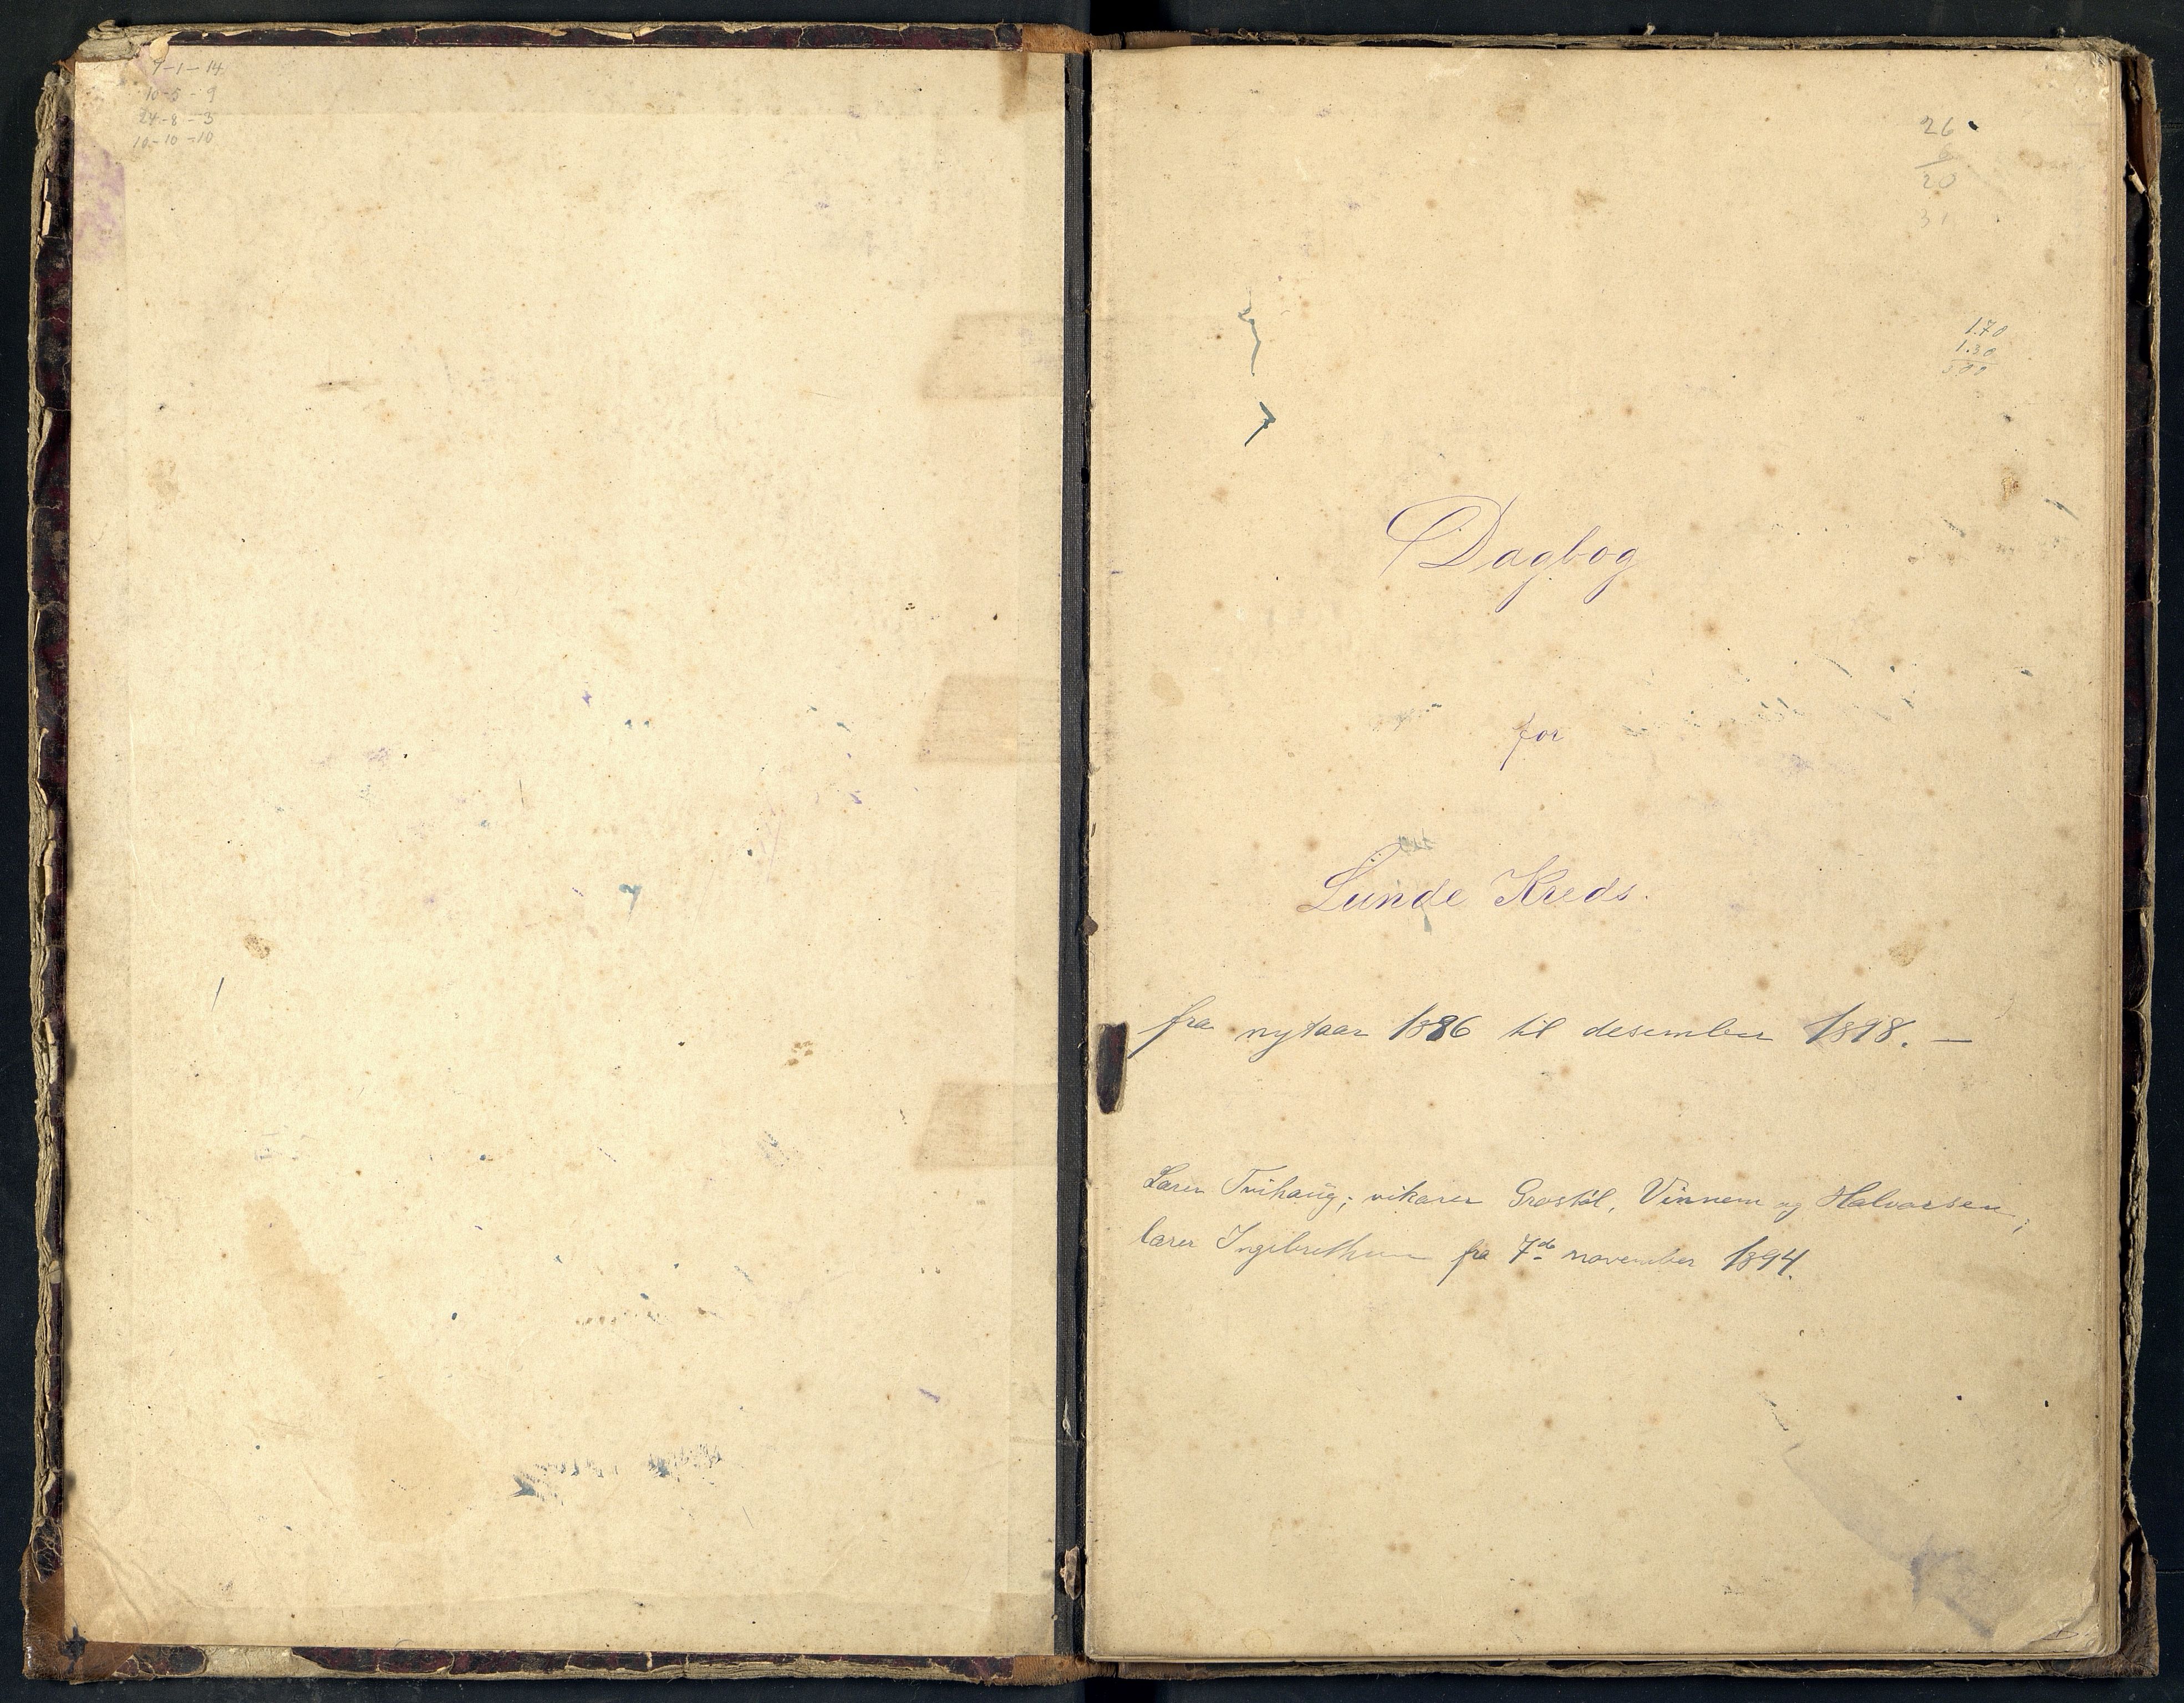 9-1-14
10-5-9
24-8-3
10-10-10
26
6
20
31
1.70
1.30
300
Dagbog
for
Lunde Kreds.
fra nytaar 1886 til desember 1898. —
Lærer Tvihaug; vikarer Grostøl, Vinnem og Halvorsen;
lærer Ingebrethsen fra 7de november 1894.